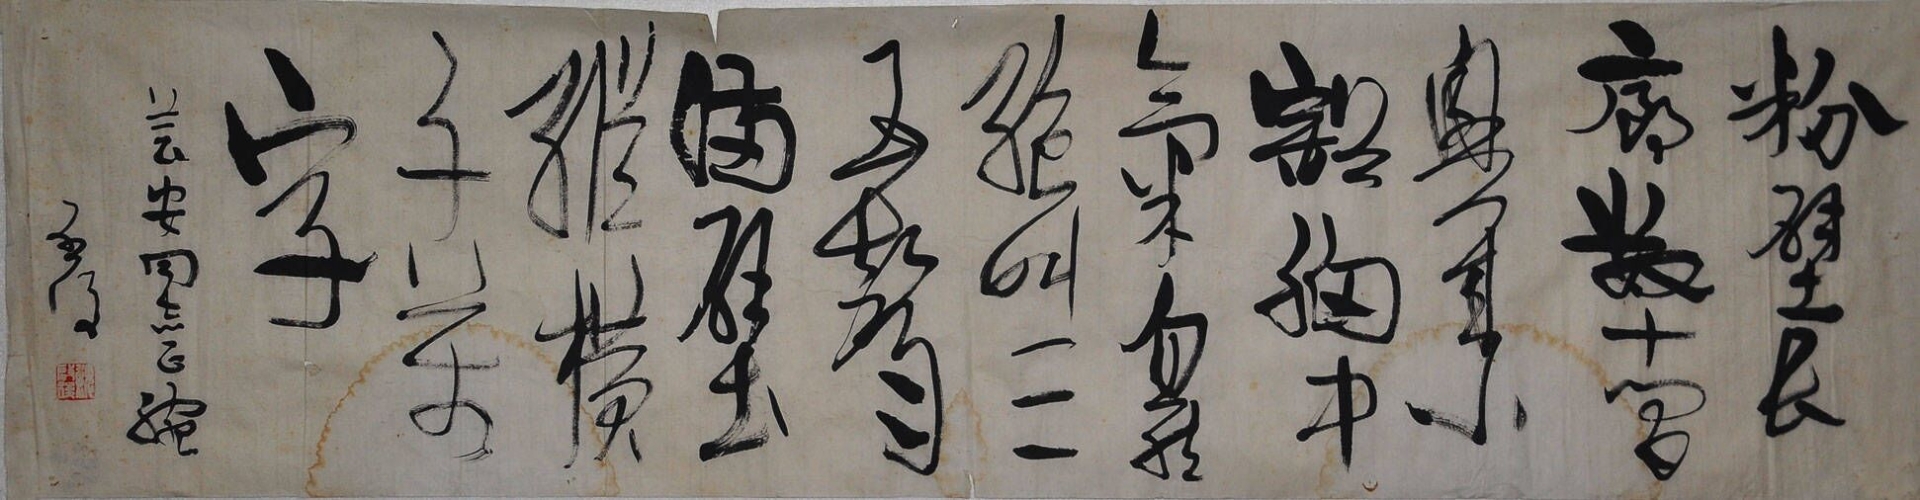 粉壁長
廊數十間
興來小
豁胸中
氣忽然
絕叫三
五聲
滿壁
縱橫
千萬
字
芸安同志正腕